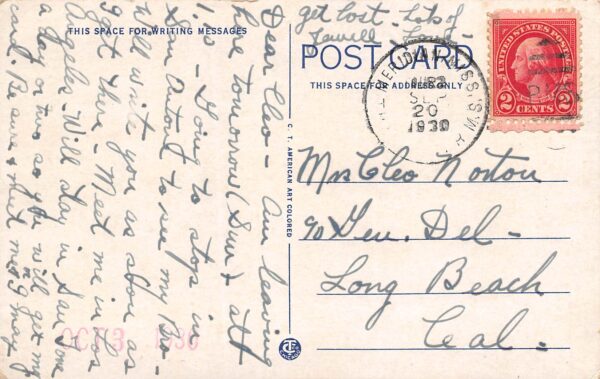 THIS SPACE FOR WRITING MESSAGES
Dear Cleo - Am leaving
here tomorrow (Sun) + at
1, is Going to stop in
San Antonio to see my Bro-
Will write you as soon as
I get there - Meet me in Los
Angeles - Will stay in San Tone
a day or two so you will get my
card. Be sure + meet me, I may
get lost - Lots of
Farwell Love -
POST CARD
THIS SPACE FOR ADDRESS ONLY
MERIDIAN, MISS.
SEP
20
1930
UNITED STATES POSTAGE
2 CENTS 2
Mrs Cleo Norton
℅ Gen. Del -
Long Beach
Cal -
C. T. AMERICAN ART COLORED
OCT 3 1930
CHICAGO